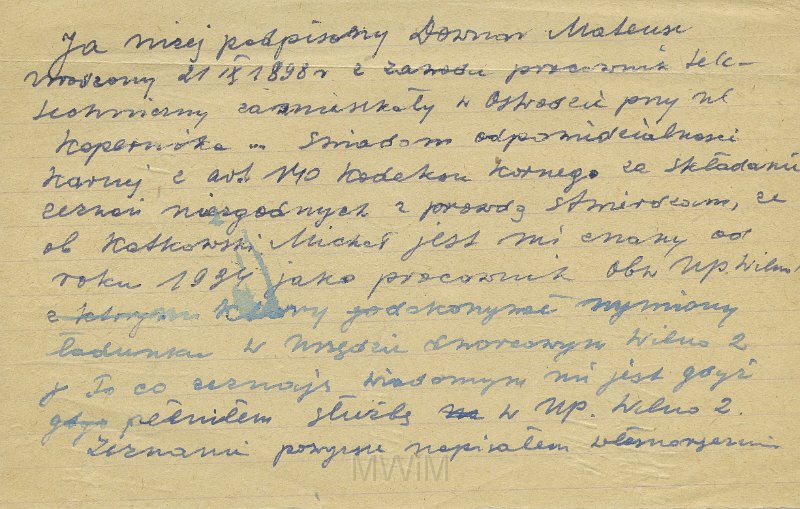 Ja niżej podpisany Downar Mateusz
urodzony 21 IX 1898 r z zawodu pracownik tele-
techniczny zamieszkały w Ostródzie przy ul
Kopernika ... Świadom odpowiedzialności
karnej z art. 140 Kodeksu Karnego za składanie
zeznań niezgodnych z prawdą stwierdzam, że
ob Kotkowski Michał jest mi znany od
roku 1924 jako pracownik Obw UP. Wilno 1
z którym który dokonywał wymiany
ładunku w Urzędzie dworcowym Wilno 2
To co zeznaję wiadomym mi jest gdyż
pełniłem służbę w UP. Wilno 2.
Zeznanie powyższe napisałem własnoręcznie
MWIM